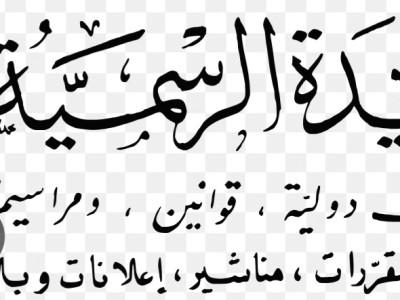 يدَة الرسميَّة
دوليّة ، قوانين ، ومراسيم
قرّرات ، مناشير ، إعلانات وبلا